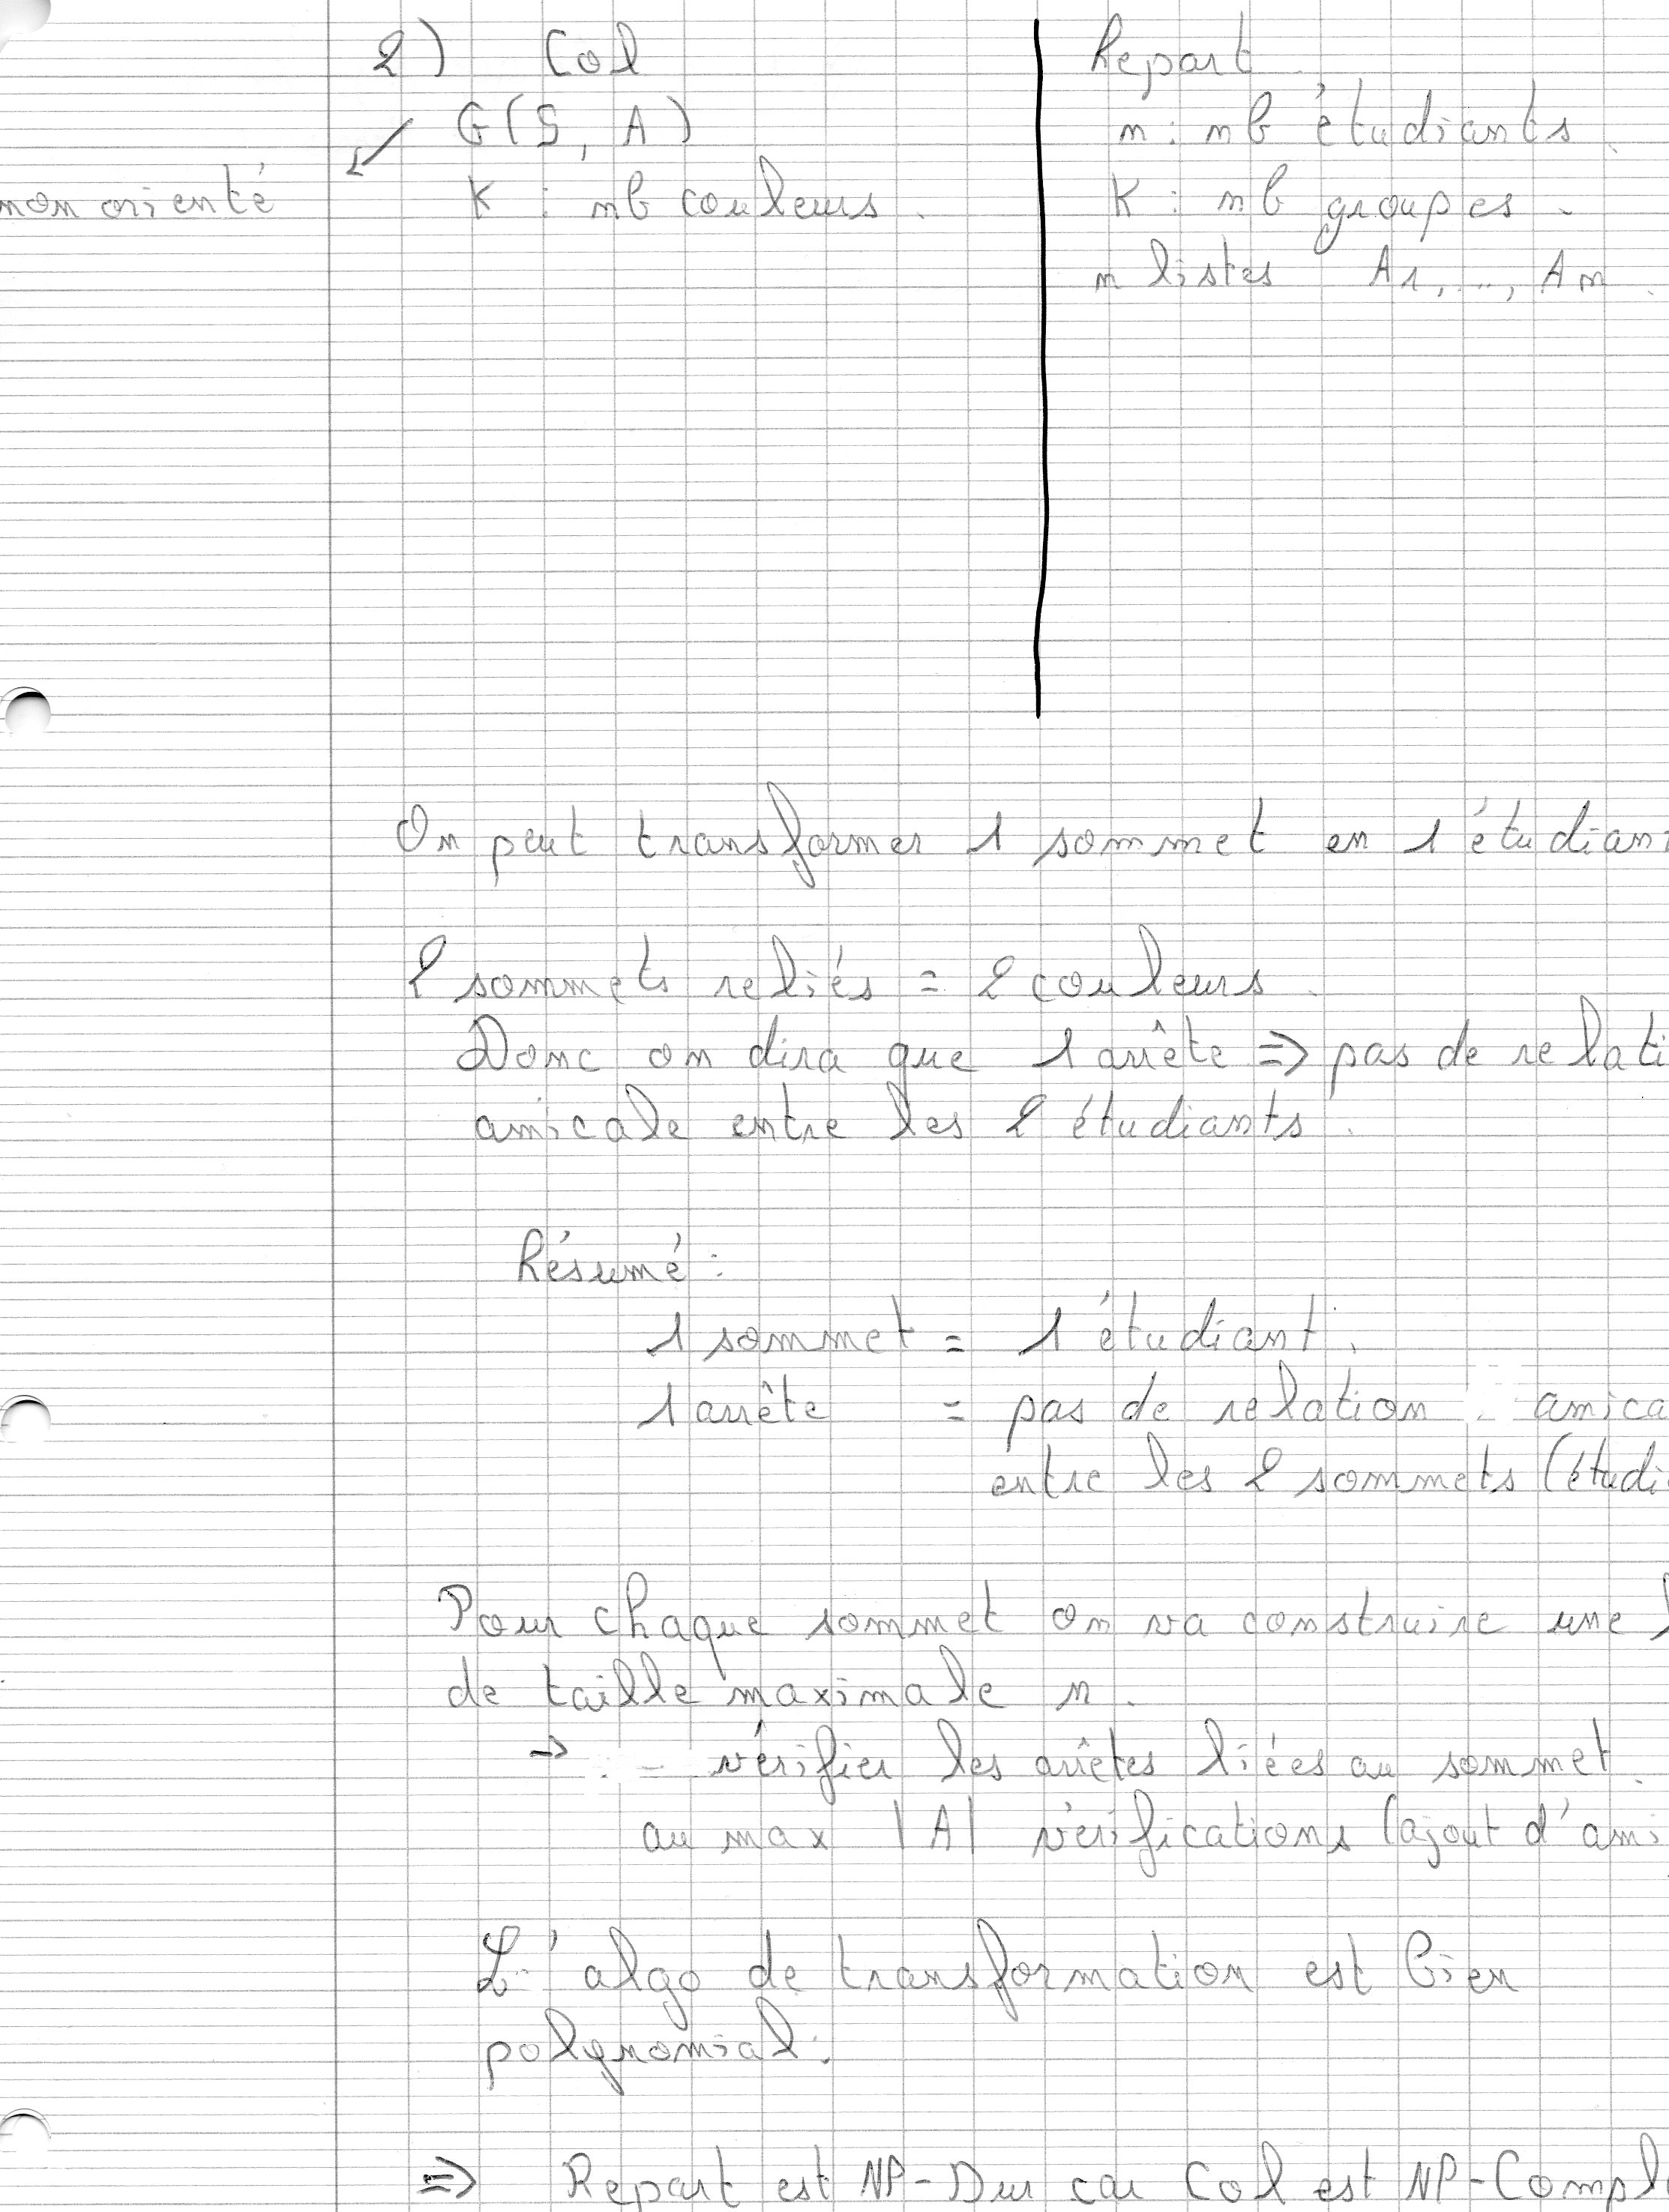 2) Col
G(S, A)
non orienté
K : nb couleurs.
Repart
n : nb étudiants.
K : nb groupes.
n listes A1, ..., An.
On peut transformer 1 sommet en 1 étudian
2 sommets reliés = 2 couleurs.
Donc on dira que 1 arrête => pas de relati
amicale entre les 2 étudiants.
Résumé :
1 sommet = 1 étudiant.
1 arrête = pas de relation amica
entre les 2 sommets (étudi
Pour chaque sommet on va construire une l
de taille maximale n.
-> - vérifier les arrêtes liées au sommet.
au max |A| vérifications (ajout d'ami
L'algo de transformation est bien
polynomial.
=> Repart est NP-Dur car Col est NP-Compl